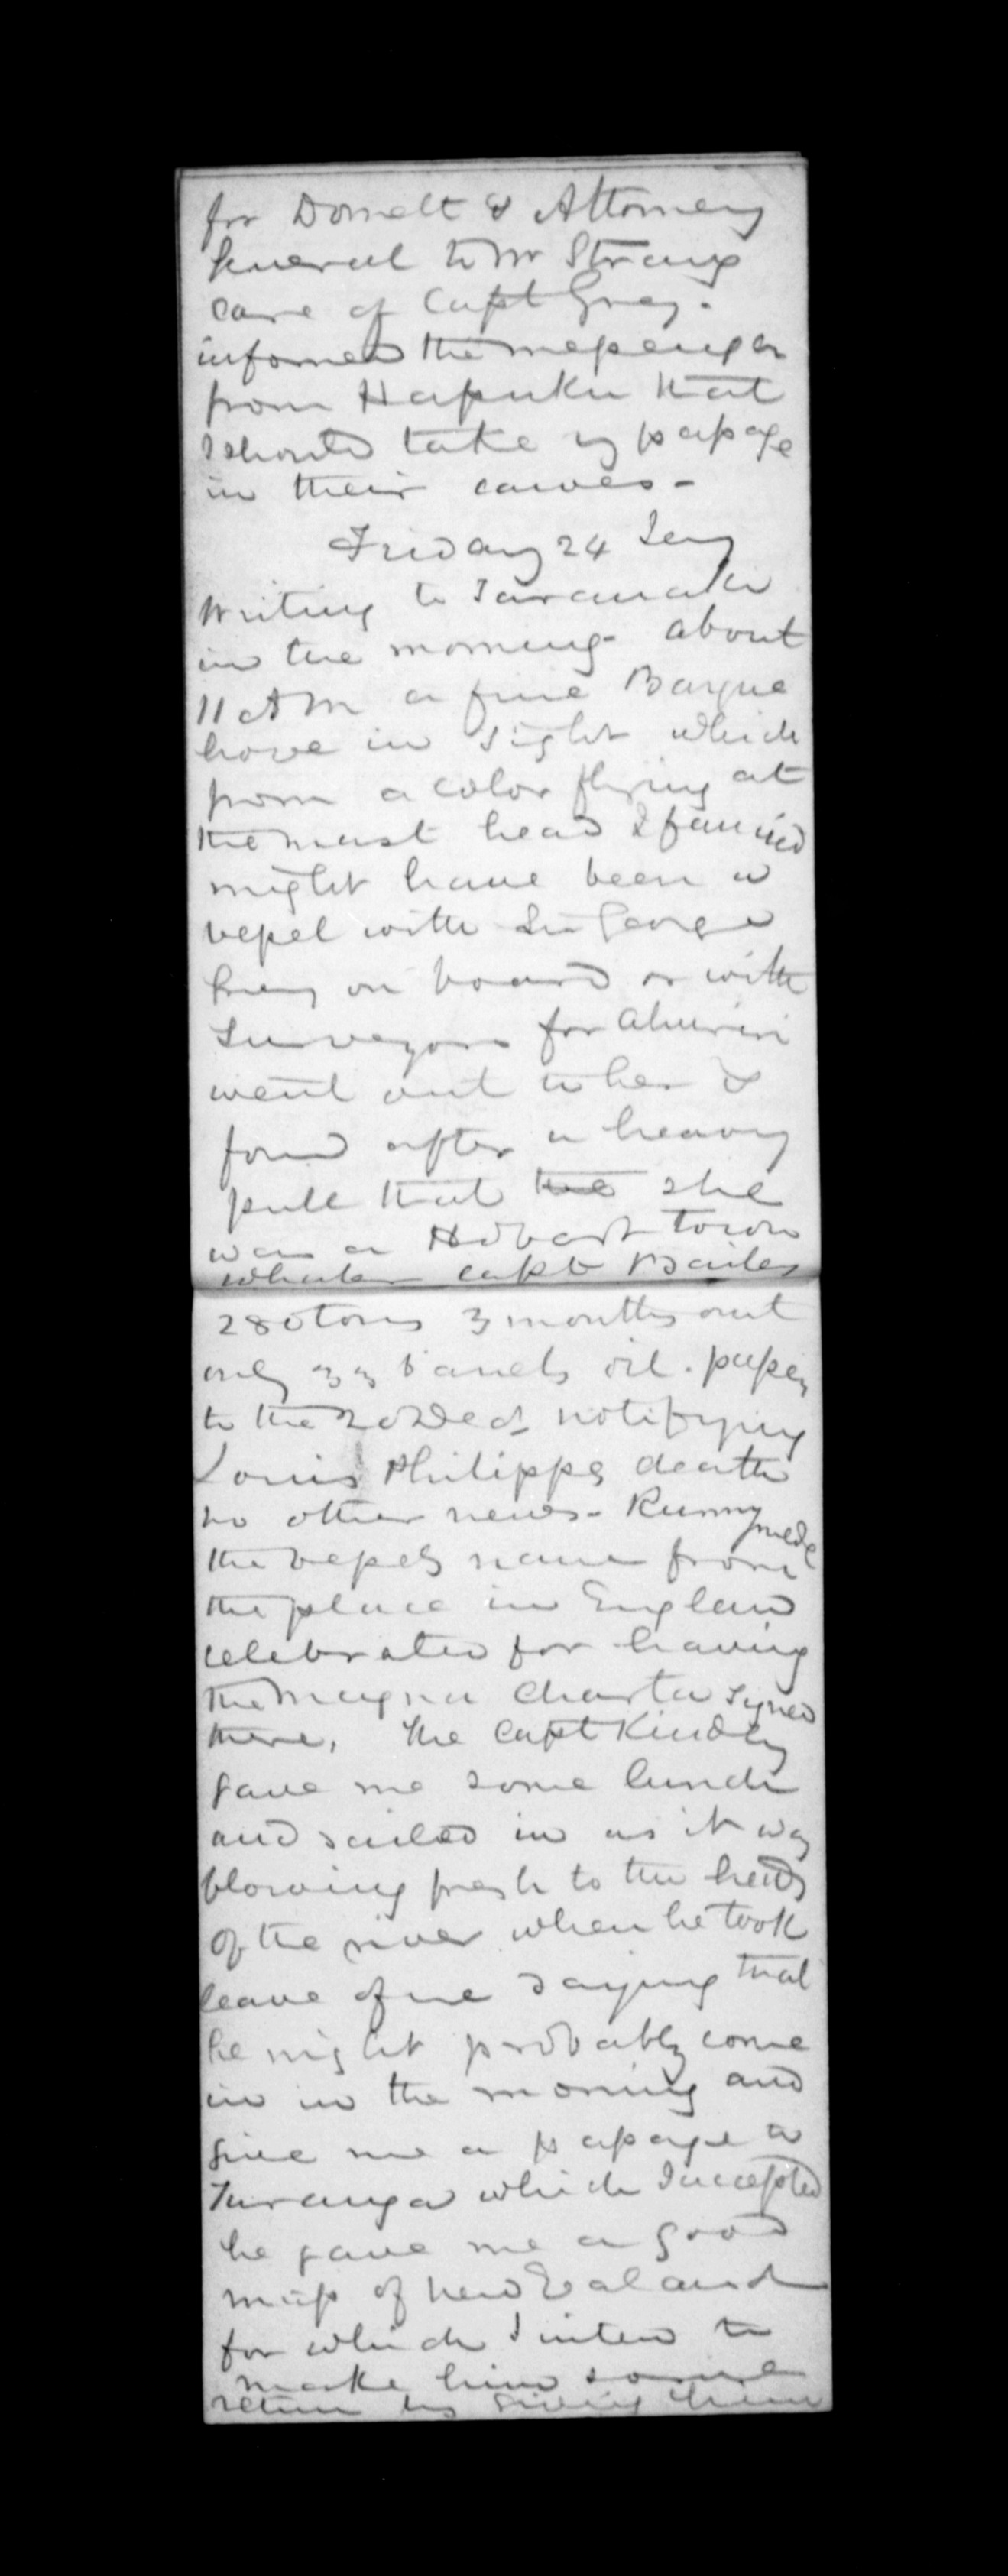 for Domett & Attorney
General to Mr Strang
care of Capt Grey.
informed the messenger
from Hapuku that
I should take my passage
in their canoes -
Friday 24 Jany
Writing to Taranaki
in the morning - about
11 AM a fine Barque
hove in sight which
from a color flying at
the mast head I fancied
might have been a
vessel with Sir George
Grey on board or with
Surveyors for Ahuriri
went out to her &
found after a heavy
pull that the she
was a Hobart town
whaler capt Bailey
280 tons 3 months out
only 33 barrels oil. papers
to the 20 Decr notifying
Louis Philippes death
no other news - Runnymede
the vessels name from
the place in England
celebrated for having
the Magna Charta Signed
there. The Capt Kindly
gave me some lunch
and sailed in as it was
blowing fresh to the heads
of the river when he took
leave of me saying that
he might probably come
in in the morning and
give me a passage to
Turanga which I accepted
he gave me a good
map of New Zealand
for which I intend to
make him some
return by giving them